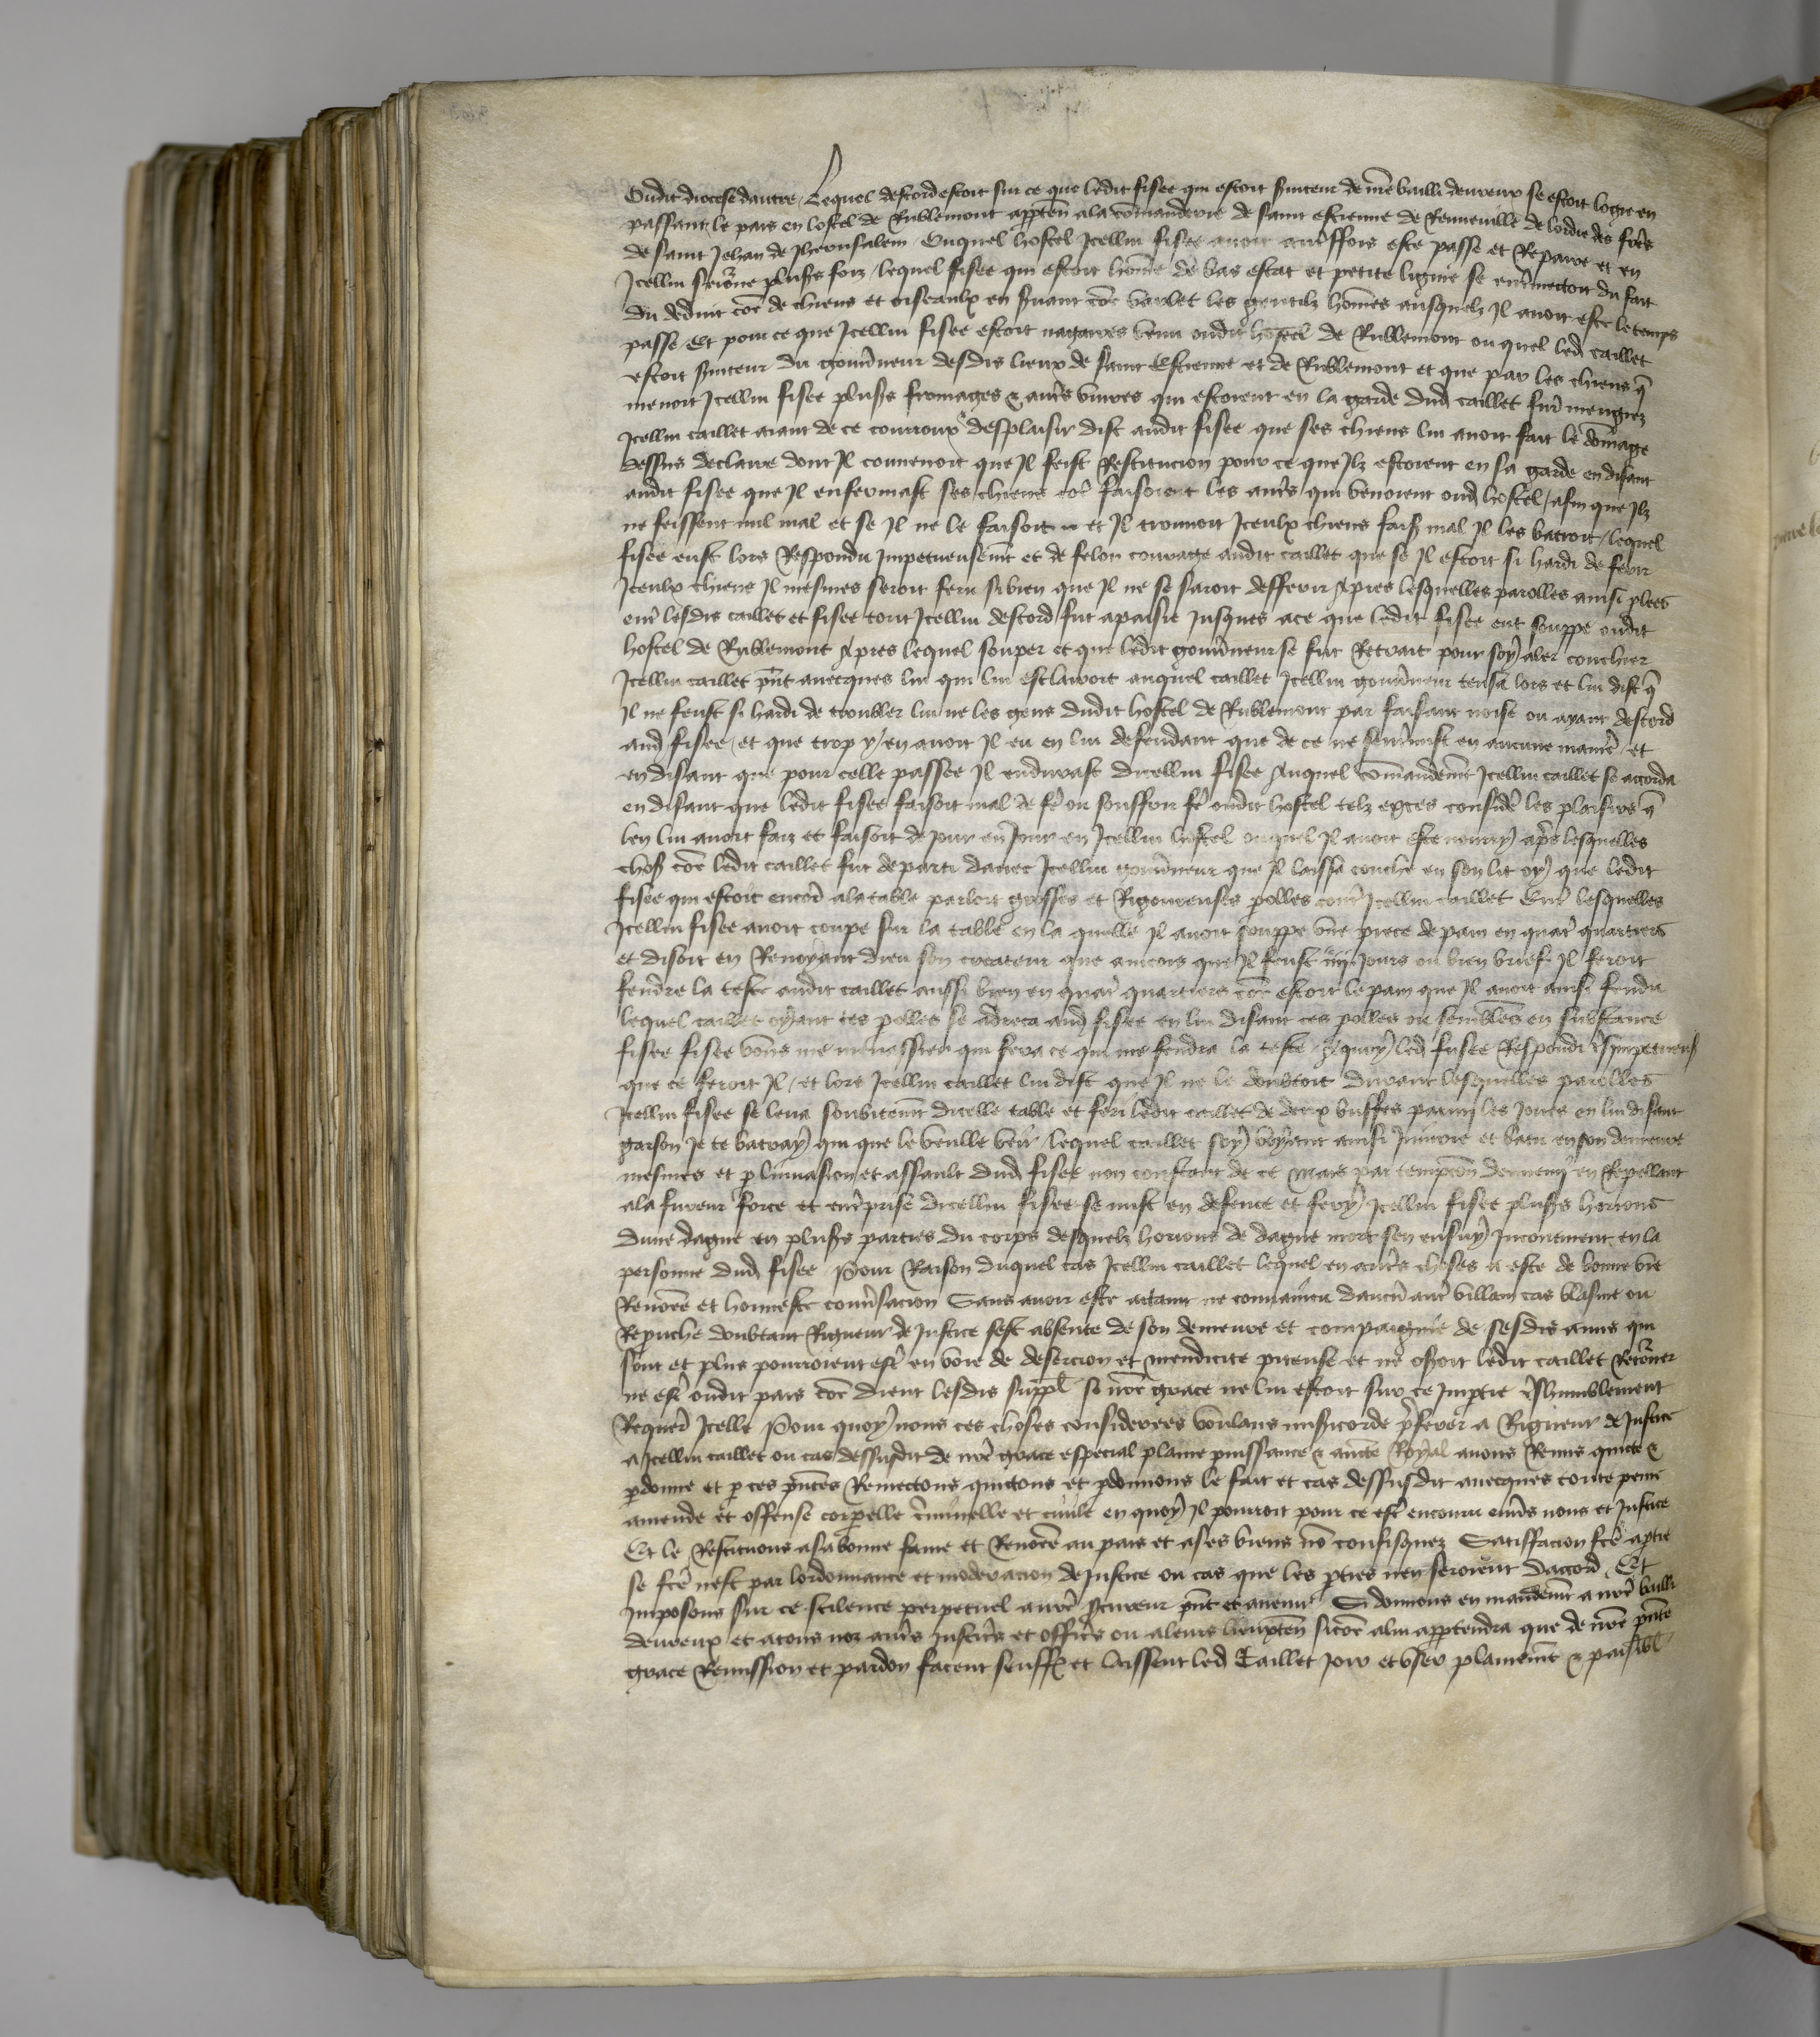 Oudit diocese dautre, Lequel descord estoit sur ce que ledit fisee qui estoit serviteur de nre bailli deureux se estoit logie en
passant le pais en lostel de Rublemont apparten a la commanderie de saint estienne de Renneuille de lordre des freres
de saint Jehan de Jherusalem Ouquel hostel Icellui fisee auoit autreffois este passe et Repaire et en
Icellui plusrs foiz, lequel fisee qui estoit home de bas estat et petite lignie se entremectoit du fait
du deduit coe de chiens et oiseaulx en suiant coe varlet les gentilz homes ausquelz Il auoit este le temps
passe Et pour ce que Icellui fisee estoit nagaires venu oudit hostel de Rublemont ou quel led caillet
estoit seruiteur du gouuneur desdis lieux de saint Estienne et de Rublemont et que par les chiens q
menoit Icellui fisee plusrs fromages & autres viures qui estoient en la garde dud caillet furent mengiez
Icellui caillet aiant de ce courroux & desplaisir dist audit fisee que ses chiens lui auoit fait le domage
dessus declaire dont Il conuenoit que Il feist Restitucion pour ce que Ilz estoient en sa garde en disant
audit fisee que Il enfermast ses chiens coe faisoient les autres qui venoient oud hostel, afin que Ilz
ne feissent nul mal et se Il ne le faisoit et Il trouuoit Iceulx chiens fais mal Il les batroit, lequel
fisee eust lors Respondu Impetueusement et de felon courage audit caillet que se Il estoit si hardi de ferir
Iceulx chiens Il mesmes seroit feru si bien que Il ne se saroit Apres lesquelles parolles ainsi plees
entre lesdis caillet et fisee tout Icellui descord fut apaisie Jusques ace que ledit fisee eut souppe oudit
hostel de Rublemont Apres lequel souper et que ledit gouuneur se fut Retrait pour soy aler couchier
Icellui caillet pnt auecques lui qui lui esclairoit auquel caillet Icellui gouuneur tensa lors et lui dist q
Il ne feust si hardi de troubler lui ne les gens dudit hostel de Rublemont par faisant noise ou ayant descord
aud fisee, et que trop y en auoit Il eu en lui defendant que de ce ne sentremist en aucune manie, et
en disant que pour celle passee Il endurast dicellui fisee Auquel comandement Icellui caillet se accorda
en disant que ledit fisee faisoit mal de fe ou souffrir fe oudit hostel telz exces conside les plaisirs q
len lui auoit faiz et faisoit de Jour en Jour en Icellui hostel ouquel Il auoit este nourry apres lesquelles
choses coe ledit caillet fut departi dauec Icellui gouuneur que Il laissa couche en son lit oy que ledit
fisee qui estoit encor a la table parloit grosses et Rigoureuses polles contre Icellui caillet Entre lesquelles
Icellui fisee auoit coupe sur la table en la quelle Il auoit souppe vne piece de pain en quatre quartiers
et disoit en Renoyant dieu son createur que aincois que Il feust iiij Jours ou bien brief Il feroit
fendre la teste audit caillet aussi bien en quatre quartiers coe estoit le pain que Il auoit ainsi fendu
lequel caillet oyant ces polles se adreca aud fisee en lui disant ces polles ou semblables en substance
fisee fisee vous me menassiez qui sera ce qui me fendra la teste A quoy led fisee Respondi
que ce seroit Il, et lors Icellui caillet lui dist que Il ne le doubtoit durant lesquelles parolles
Icellui fisee se leua soubitement dicelle table et feri ledit caillet de deux buffes parmi les Joues en lui disant
garson Je te batray qui que le veulle veir, lequel caillet soy voyant ainsi Jniurie et batu en son demeure
mesmes et p linuasion et assault dud fisee non content de ce mais par temptaon dennemy en Repellant
ala fureur force et entreprise dicellui fisee se mist en defence et fery Icellui fisee plusrs horions
dune dague en plusrs parties du corps desquelz horions de dague mort sen ensuy Incontinent en la
personne dud fisee Pour Raison duquel cas Icellui caillet lequel en autres choses a este de bonne vie
Renomee et honneste conuersacion Sans auoir este actaint ne conuaincu daucun autre villain cas blasme ou
Reprouche doubtant Rigueur de Justice sest absente de son demeure et compaignie de sesdis amis qui
sont et plus pourroient estre en voie de desercion et mendicite piteuse et ne oseroit ledit caillet Retourner
ne estre oudit pais coe dient lesdis suppl se nre grace ne lui estoit sur ce Impartie humblement
Requerans Icelle Pour quoy nous ces choses considerees voulans misericorde preferer a Rigueur de Justice
a Icellui caillet ou cas dessusdit de nre grace especial plaine puissance & aucte Royal auons Remis quicte &
pdonne et p ces pntes Remectons quictons et pdonnons le fait et cas dessusdit auecques toute peine
amende et offense corporelle criminelle et ciuile en quoy Il pourroit pour ce estre encouru enuers nous et Justice
Et le Restituons asa bonne fame et Renomee au pais et ases biens no confisquez Satisfacion fce a ptie
se fce nest par lordonnance et moderacion de Justice ou cas que les pties nen seroient dacord Et
Imposons sur ce scilence perpetuel a nre procureur pnt et auenir Si donnons en mandement a nre bailli
deureux et atous noz autres Justiciers et officiers ou aleurs lieuxten sicoe alui appartendra que de nre pnte
grace Remission et pardon facent seuffrent et laissent led Caillet Joir et user plainement & paisibl